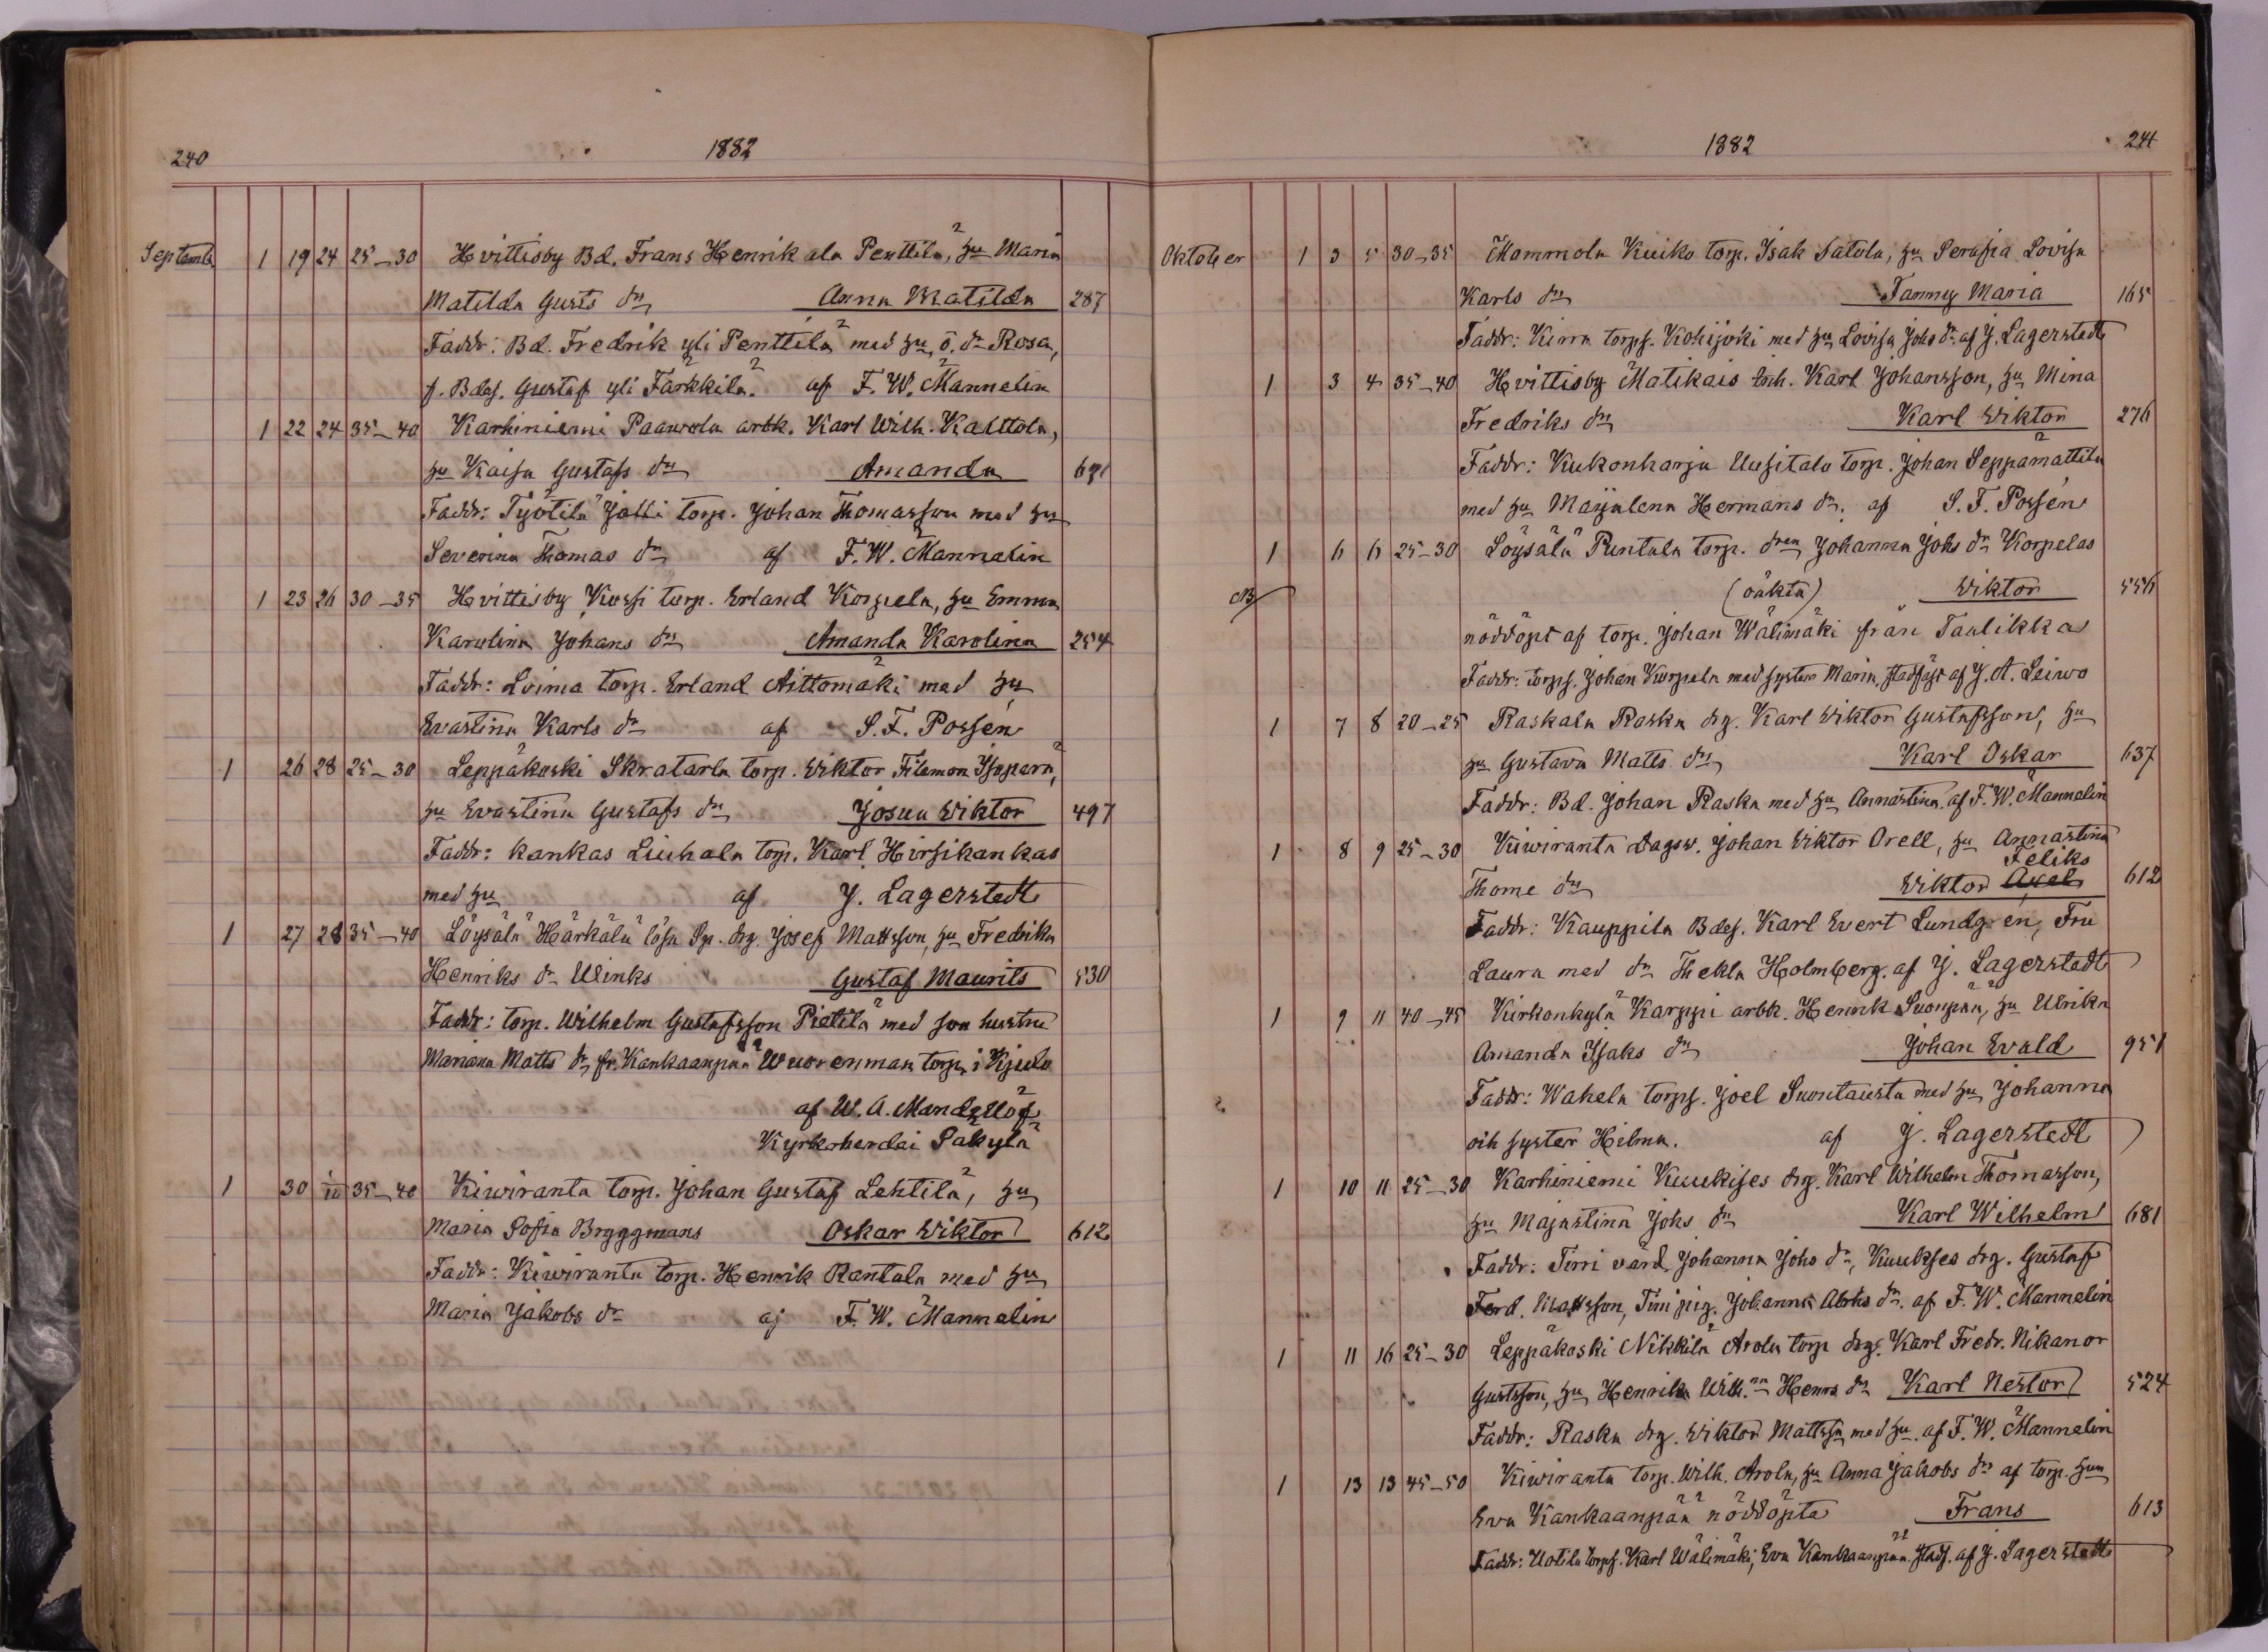 240 1882
Septemb. 1 19 24 25-30 Hvittisby Bd. Frans Henrik ala Penttilä, hu Maria
Matilda Gusts dr Anna Matilda 287
Faddr: Bd. Fredrik yli Penttilä med hu, o. dr Rosa,
f. Bdes. Gustaf yli Färkkilä. af F. W. Mannelin
1 22 24 35-40 Karhiniemi Paavola arbk. Karl Wilh. Kalttola,
hu Kaisa Gustafs dr Amanda 691
Faddr: Työtilä Jalli torp. Johan Thomasson med hu
Severina Thomas dr af F. W. Mannelin
1 23 26 30-35 Hvittisby Kossi torp. Erland Korpela, hu Emma
Karolina Johans dr Amanda Karolina 254
Faddr: Loima torp. Erland Aittomäki med hu
Evastina Karls dr af S. F. Possén
1 26 28 25-30 Leppäkoski Skratarla torp. Viktor Filemon Isoperä,
hu Evastina Gustafs dr Josua Viktor 497
Faddr: Kankas Liuhala torp. Karl Hirsikankas
med hu af J. Lagerstedt
1 27 28 35-40 Löysälä Härkälä lösa Sp. drg. Josef Mattsson, hu Fredrika
Henriks dr Winks Gustaf Maurits 530
Faddr: torp. Wilhelm Gustafsson Pietilä med son hustru
Mariana Matts dr, fr. Kankaanpää Wuorenmaa torp. i Kjulo
af W. A. Mandellöf
Kyrkoherde i Säkylä
1 30 1/10 35-40 Kiwiranta torp. Johan Gustaf Lehtilä, hu
Maria Sofia Brygggmans Oskar Viktor 612
Faddr: Kiwiranta torp. Henrik Rantala med hu
Maria Jakobs dr af F. W. Mannelin
1882 241
Oktober 1 3 5 30-35 Mommola Kuiko torp. Isak Satola, hu Serafia Lovisa
Karls dr Fanny Maria 165
Faddr: Kirra torps. Kohijoki med hu Lovisa Johs dr. af J. Lagerstedt
1 3 4 35-40 Hvittisby Matikais inh. Karl Johansson, hu Mina
Fredriks dr Karl Viktor 276
Faddr: Kukonharja Uusitalo torp. Johan Seppämattila
med hu Majalena Hermans dr. af S. F. Possén
1 6 6 25-30 Löysälä Puntala torp. dren Johanna Johs dr Korpelas
NB (oäkta) Viktor 556
nöddöpt af torp. Johan Wälimäki från Taulikka
Faddr: torps. Johan Korpela med syster Maria, stadfäst af J. A. Leiwo
1 7 8 20-25 Raskala Raska drg. Karl Viktor Gustafsson, hu
hu Gustava Matts dr Karl Oskar 637
Faddr: Bd. Johan Raska med hu Annastina. af F. W. Mannelin
1 8 9 25-30 Kiiwiranta Dagsv. Johan Viktor Orell, hu Annastina
Feliks
Thome dr Viktor Axel 612
Faddr: Kauppila Bdes. Karl Evert Lundgrén, Fru
Laura med dr Thekla Holmberg. af J. Lagerstedt
1 9 11 40-45 Kirkonkylä Karppi arbk. Henrik Suonpää, hu Ulrika
Amanda Isaks dr Johan Evald 951
Faddr: Wahela torps. Joel Suontausta med hu Johanna
och syster Hilma. af J. Lagerstedt
1 10 11 25-30 Karhiniemi Kuukises drg. Karl Wilhelm Thomasson,
hu Majastina Johs dr Karl Wilhelm 681
Faddr: Tirri värd. Johanna Johs dr, Kuukses drg. Gustaf
Ferd. Mattsson, Tirri pig. Johanna Abrhs dr. af F. W. Mannelin
1 11 16 25-30 Leppäkoski Nikkilä Arola torp drg. Karl Fredr. Nikanor
Gustsson, hu Henrika Wilh.na Henrs dr Karl Nestor 524
Faddr: Raska drg. Viktor Mattssn med hu. af F. W. Mannelin
1 13 13 45-50 Kiwiranta torp. Wilh. Arola, hu Anna Jakobs dr af torp. hun
Eva Kankaanpää nöddöpta Frans 613
Faddr: Uotila torps. Karl Wälimäki, Eva Kankaanpää. stadf. af J. Lagerstedt